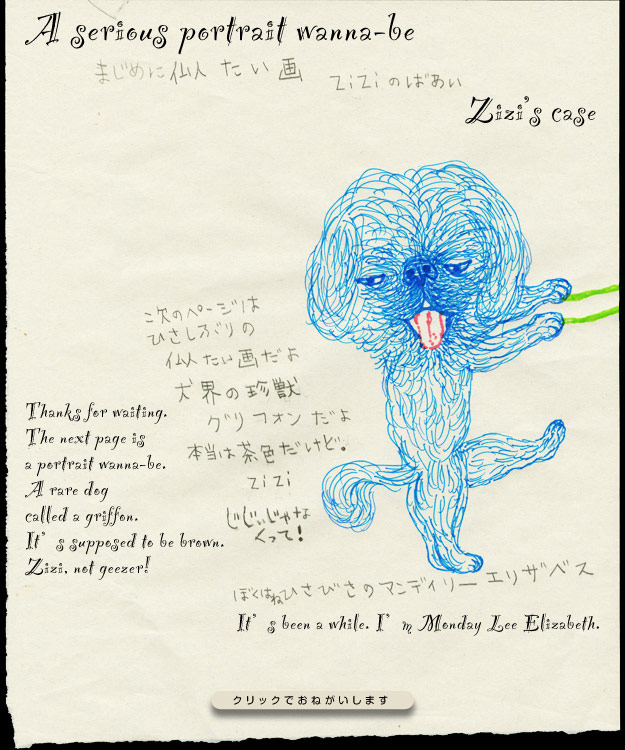 A serious portrait wanna-be
まじめに仙人たい画
ZiZiのばあい
Zizi's case
次のページは
ひさしぶりの
仙人たい画だよ
犬界の珍獣
グリフォンだよ
本当は茶色だけど。
ZiZi
じじぃじゃな
くって!
Thanks for waiting.
The next page is
a portrait wanna-be.
A rare dog
called a griffon.
It's supposed to be brown.
Zizi, not geezer!
ぼくはねひさびさのマンデイリーエリザベス
It's been a while. I'm Monday Lee Elizabeth.
クリックでおねがいします